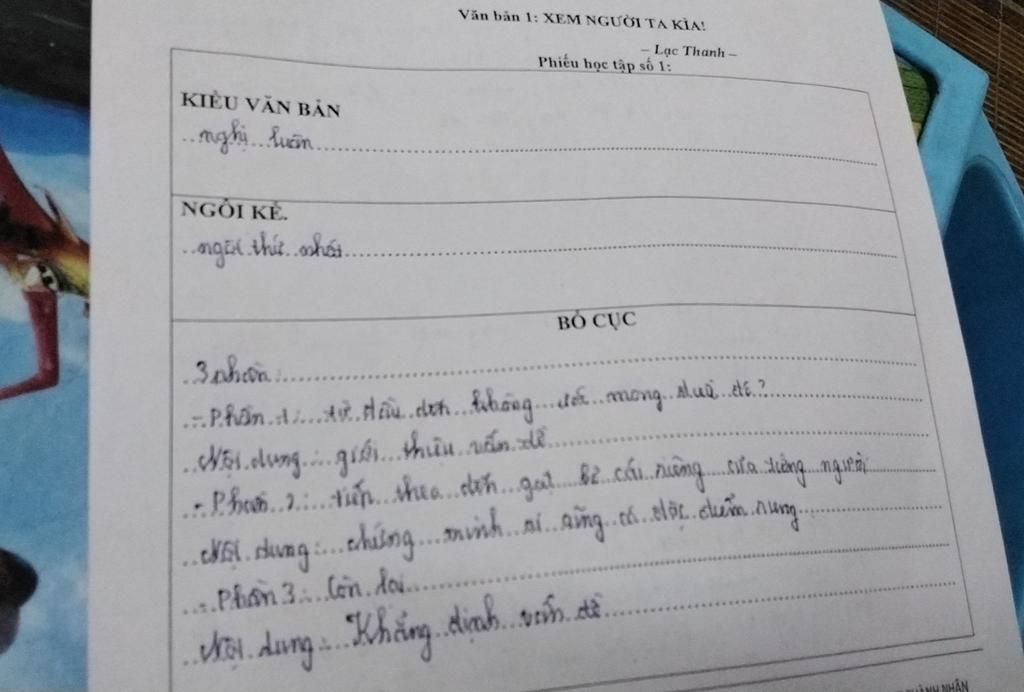 Văn bản 1: XEM NGƯỜI TA KÌA!
– Lạc Thanh –
Phiếu học tập số 1:
KIỂU VĂN BẢN
nghị luận
NGÔI KỂ.
ngôi thứ nhất
BỐ CỤC
3 phần:
- Phần 1: từ đầu đến không ước mong điều đó?
Nội dung: giới thiệu vấn đề
- Phần 2: tiếp theo đến gạt bỏ cái riêng của từng người
Nội dung: chứng minh ai cũng có đặc điểm
- Phần 3: Còn lại
Nội dung: Khẳng định vấn đề
THÀNH NHÂN